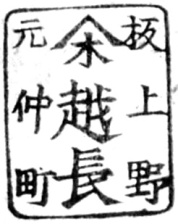 板上野
𠆢木越長
元仲町